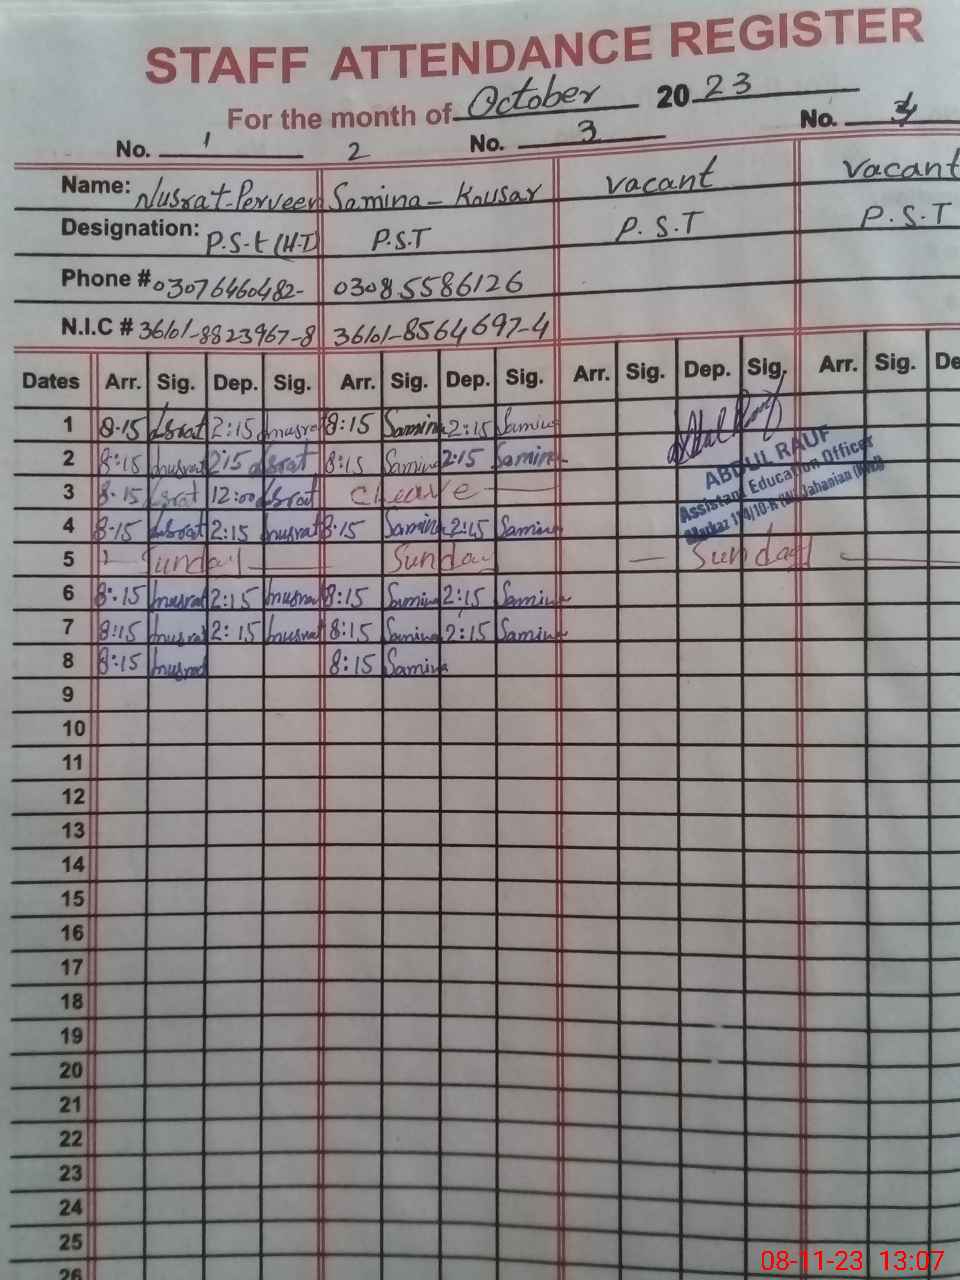 STAFF ATTENDANCE REGISTER
For the month of October 2023
No. 1 2 No. 3 No.
Name: Nusrat-Perveen Samina - Kousar vacant vacant
Designation: P.S.t (H.T) P.S.T P.S.T P.S.T
Phone # 03076460482- 03085586126
N.I.C # 36101-8823967-8 36101-8564697-4
Dates Arr. Sig. Dep. Sig. Arr. Sig. Dep. Sig. Arr. Sig. Dep. Sig. Arr. Sig. De
1 8-15 2:15 8:15 Samina 2:15 Samina
2 8:15 2:15 8:15 Samina 2:15 Samina
ABDUL RAUF
Assistant Education Officer
3 8-15 12:00 C Leave
Markaz 114/10-R (W) Jahanian (KWL)
4 8-15 2:15 8:15 Samina 2:15 Samina
5 Sunday Sunday Sunday
6 8:15 2:15 8:15 Samina 2:15 Samina
7 8:15 2:15 8:15 Samina 2:15 Samina
8 8:15 8:15 Samina
9
10
11
12
13
14
15
16
17
18
19
20
21
22
23
24
25
26
08-11-23 13:07